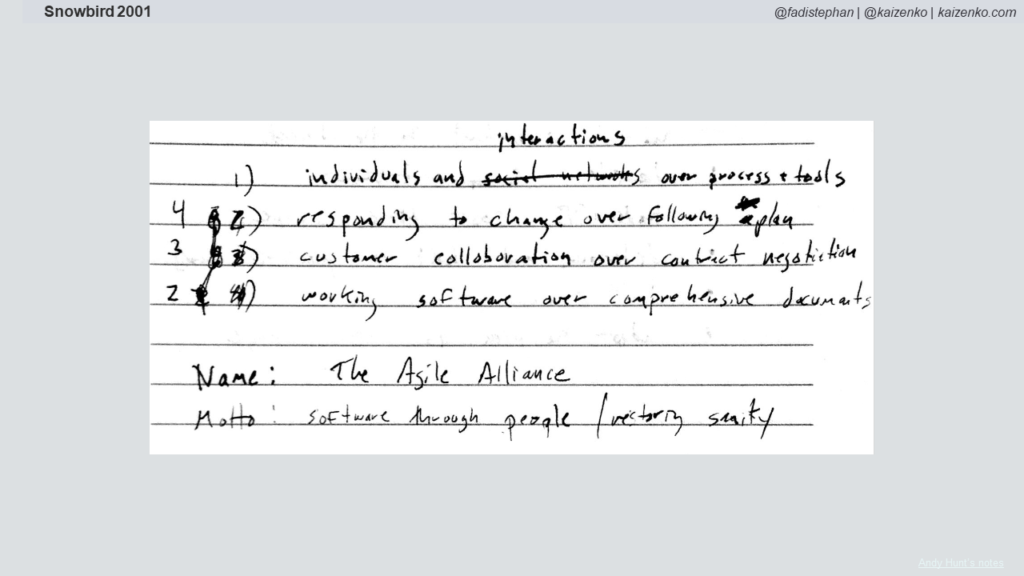 Snowbird 2001
@fadistephan | @kaizenko | kaizenko.com
interactions
1) individuals and social networks over process + tools
4 2) responding to change over following a plan
3 3) customer collaboration over contract negotiation
2 4) working software over comprehensive documents
Name: The Agile Alliance
Motto: software through people / sanity
Andy Hunt's notes